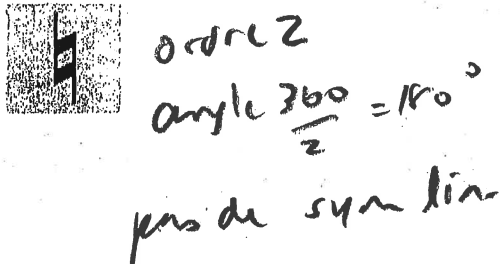 ordre 2
angle 360/2 = 180°
pas de sym lin